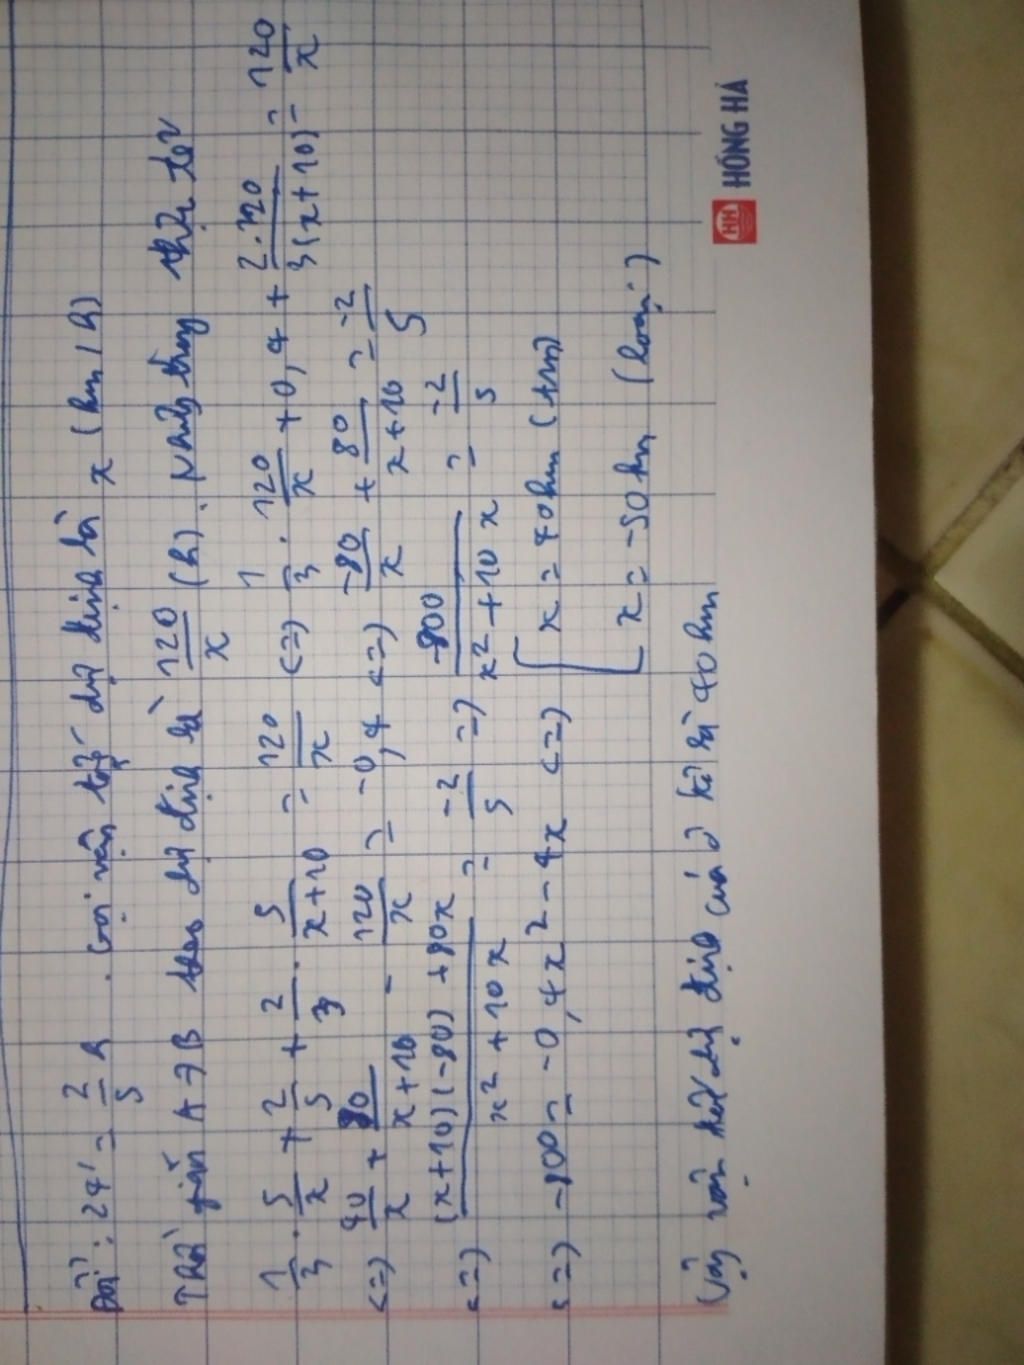 Đổi: 24' = 2/5 h. Gọi vận tốc dự định là x (km/h)
Thời gian A→B theo dự định là 120/x (h). Nhưng trong thực tế
1/3 . S/x + 2/5 + 2/3 . S/x+10 = 120/x <=> 1/3 . 120/x + 0,4 + 2.120/3(x+10) = 120/x
<=> 40/x + 80/x+10 - 120/x = -0,4 <=> -80/x + 80/x+10 = -2/5
<=> (x+10)(-80)+80x/x²+10x = -2/5 => -800/x²+10x = -2/5
<=> -800 = -0,4x² - 4x <=> [ x = 40 km (t/m)
x = -50 km (loại)
Vậy vận tốc dự định của ô tô là 40 km
HỒNG HÀ